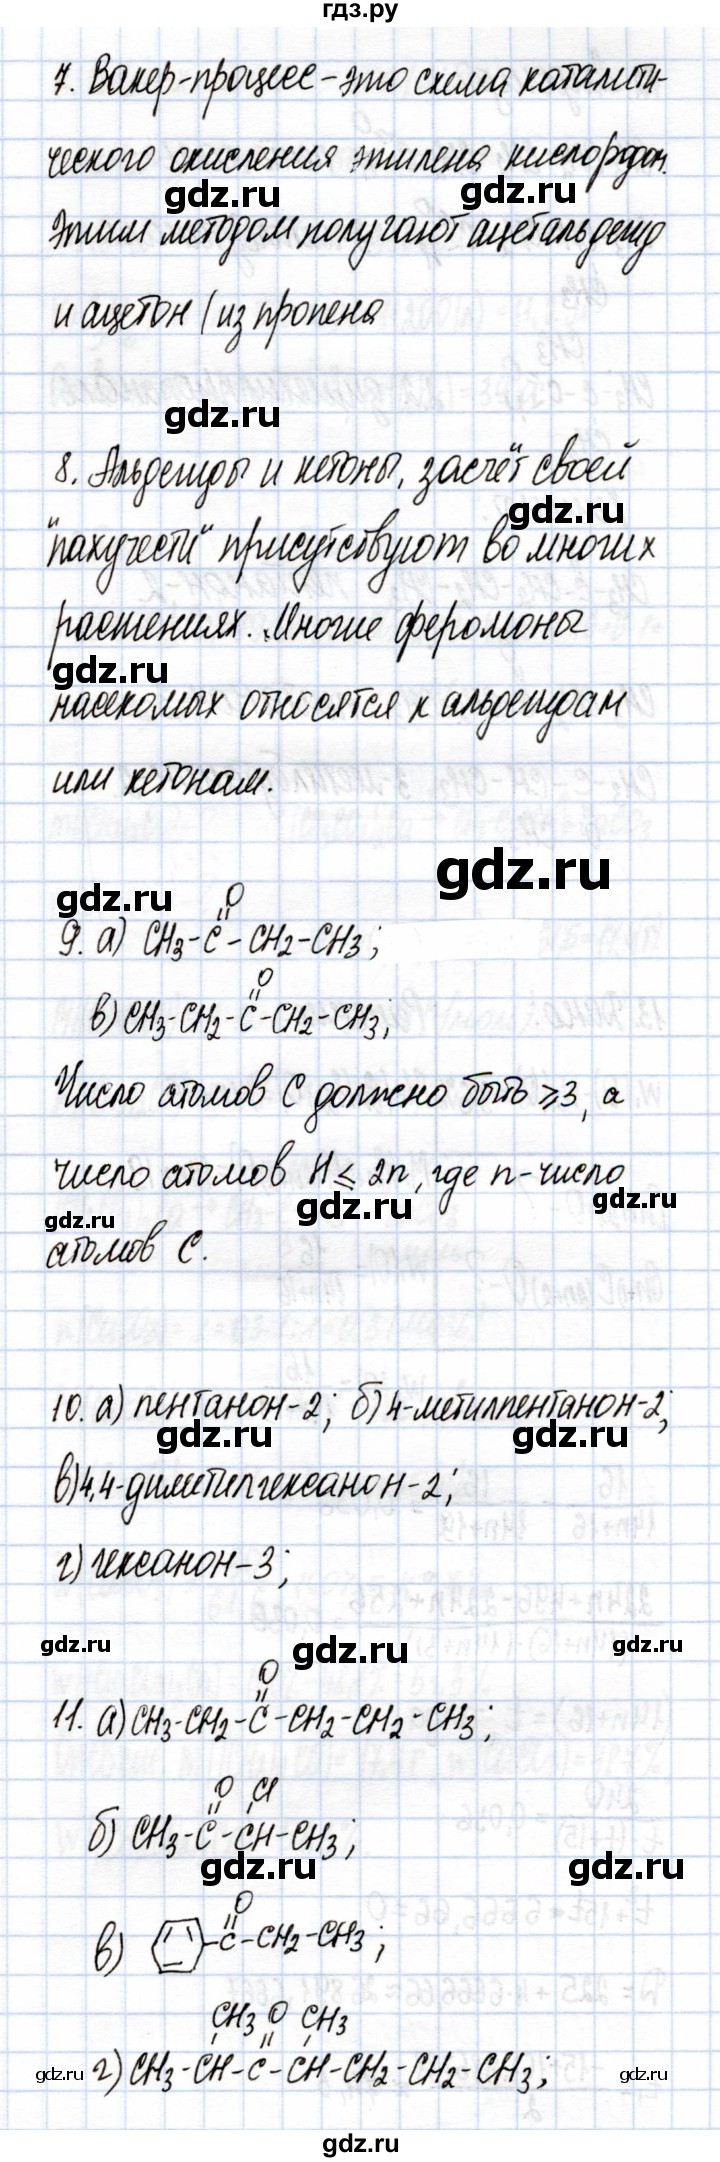 гдз.ру
7. Вакер-процесс - это схема каталити-
ческого окисления этилена кислородом.
gdz.ru
gdz.ru
Этим методом получают ацетальдегид
и ацетон (из пропена
gdz.ru
8. Альдегиды и кетоны, засчёт своей
gdz.ru
"пахучести" присутствуют во многих
растениях. Многие феромоны
gdz.ru
насекомых относятся к альдегидам
или кетонам.
gdz.ru
gdz.ru
O
9. а) CH3-C-CH2-CH3;
O
в) CH3-CH2-C-CH2-CH3;
Число атомов C должно быть ⩾3, а
число атомов H ⩽ 2n, где n-число
gdz.ru
gdz.ru
gdz.ru
атомов C.
10. а) пентанон-2; б) 4-метилпентанон-2;
gdz.ru
gdz.ru
в) 4,4-диметилгексанон-2;
г) гексанон-3;
gdz.ru
gdz.ru
gdz.ru
O
11. а) CH3-CH2-C-CH2-CH2-CH3;
O Cl
б) CH3-C-CH-CH3;
gdz.ru
gdz.ru
O
в) -C-CH2-CH3;
CH3 O CH3
г) CH3-CH-C-CH-CH2-CH2-CH3;
gdz.ru
gdz.ru
gdz.ru